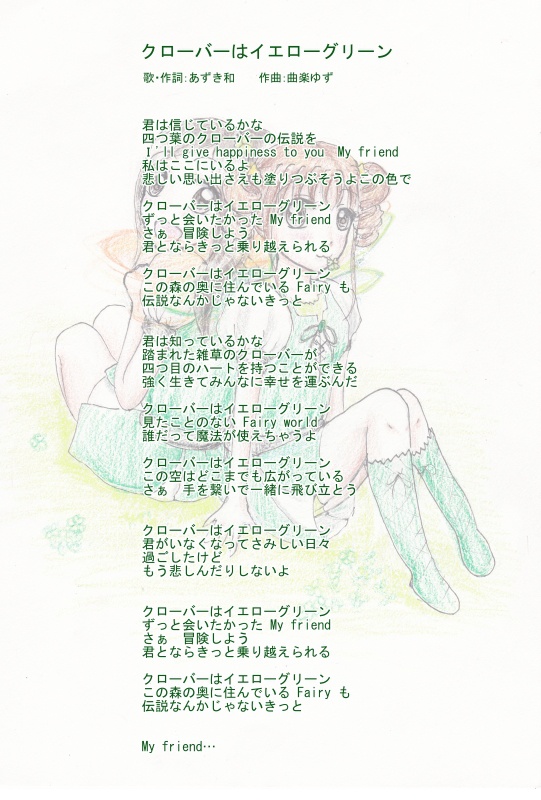 クローバーはイエローグリーン
歌・作詞:あずき和　　作曲:曲楽ゆず
君は信じているかな
四つ葉のクローバーの伝説を
I'll give happiness to you  My friend
私はここにいるよ
悲しい思い出さえも塗りつぶそうよこの色で
クローバーはイエローグリーン
ずっと会いたかった My friend
さぁ　冒険しよう
君とならきっと乗り越えられる
クローバーはイエローグリーン
この森の奥に住んでいる Fairy も
伝説なんかじゃないきっと
君は知っているかな
踏まれた雑草のクローバーが
四つ目のハートを持つことができる
強く生きてみんなに幸せを運ぶんだ
クローバーはイエローグリーン
見たことのない Fairy world
誰だって魔法が使えちゃうよ
クローバーはイエローグリーン
この空はどこまでも広がっている
さぁ　手を繋いで一緒に飛び立とう
クローバーはイエローグリーン
君がいなくなってさみしい日々
過ごしたけど
もう悲しんだりしないよ
クローバーはイエローグリーン
ずっと会いたかった My friend
さぁ　冒険しよう
君とならきっと乗り越えられる
クローバーはイエローグリーン
この森の奥に住んでいる Fairy も
伝説なんかじゃないきっと
My friend…